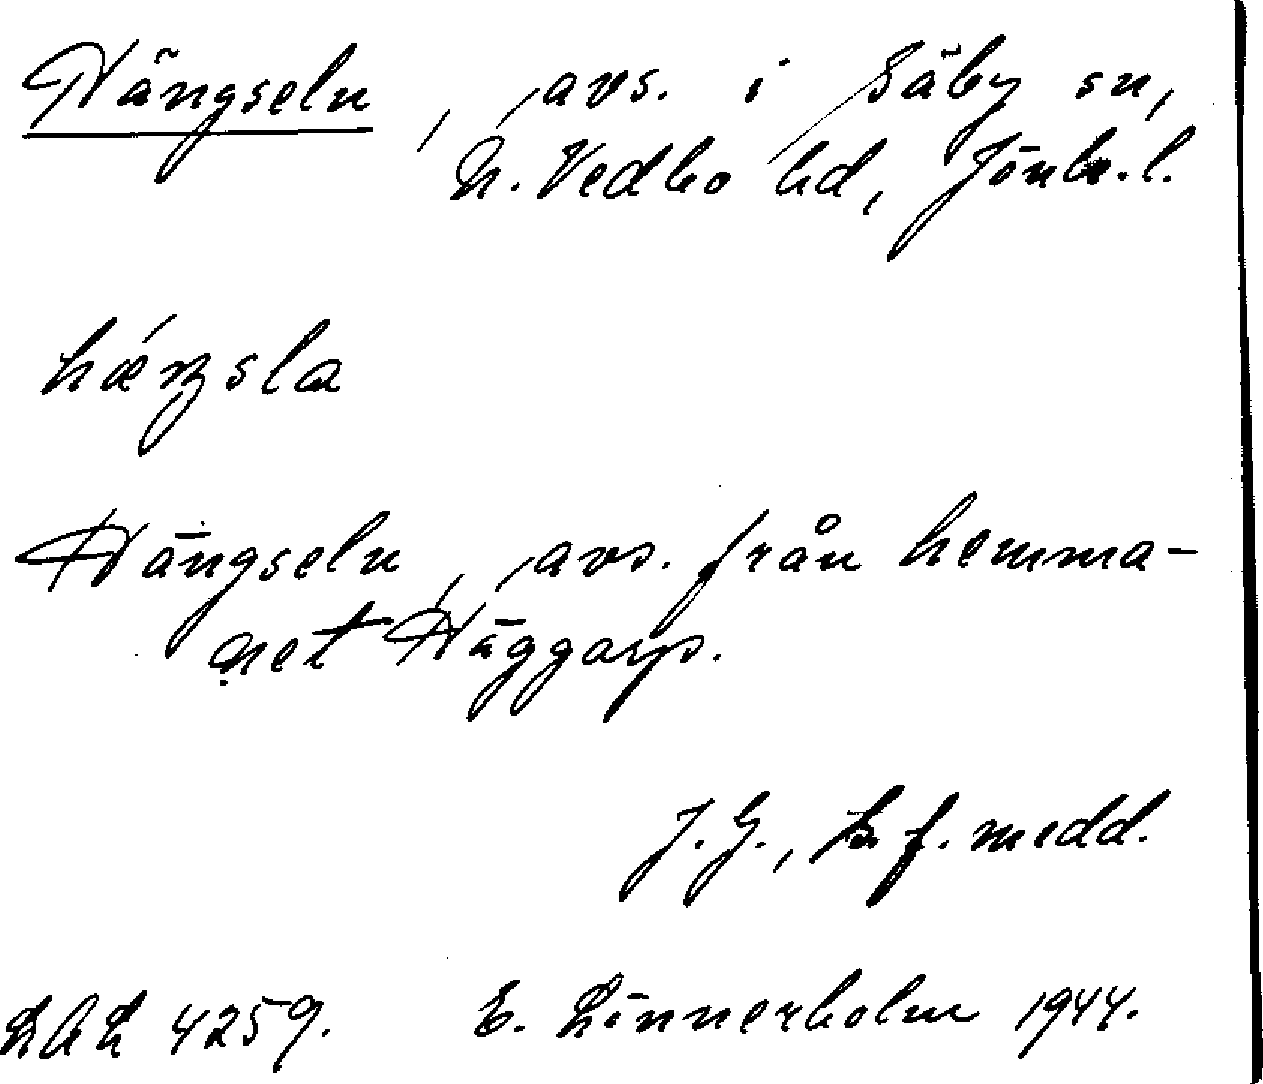 Hängseln, avs. i Säby sn,
N. Vedbo hd, Jönk. l.
hǽŋsla
Hängseln, avs. från hemma-
net Häggarp.
J. G., s. f. medd.
LAL 4259. E. Linnerholm 1944.